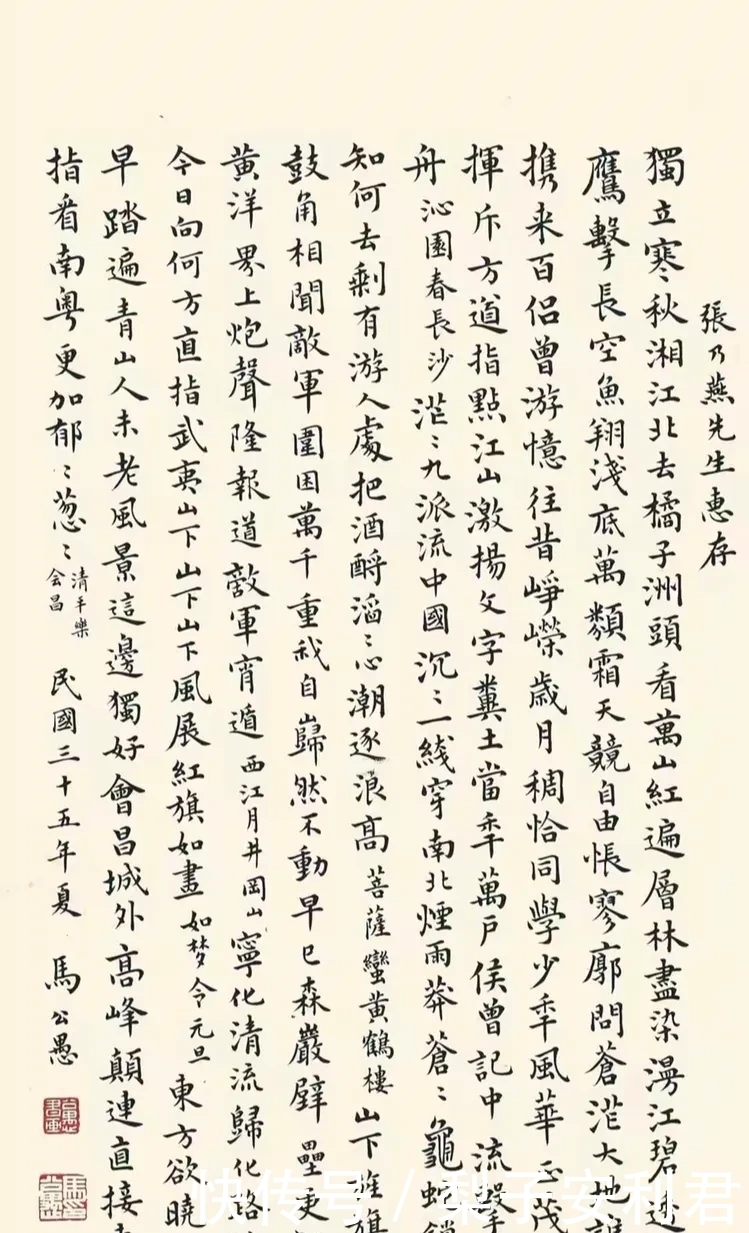 張乃燕先生惠存
獨立寒秋湘江北去橘子洲頭看萬山紅遍層林盡染漫江碧透
鷹擊長空魚翔淺底萬類霜天競自由悵寥廓問蒼茫大地誰
携来百侣曾游憶往昔崢嶸歲月稠恰同學少年風華正茂
揮斥方遒指點江山激揚文字糞土當年萬戶侯曾記中流擊
舟沁園春長沙茫〻九派流中國沉〻一綫穿南北煙雨莽蒼〻龜蛇鎖
知何去剩有游人處把酒酹滔〻心潮逐浪高菩薩蠻黃鶴樓山下旌旗
鼓角相聞敵軍圍困萬千重我自巋然不動早已森嚴壁壘更
黃洋界上炮聲隆報道敵軍宵遁西江月井岡山寧化清流歸化路
今日向何方直指武夷山下山下山下風展紅旗如畫如梦令元旦東方欲曉
早踏遍青山人未老風景這邊獨好會昌城外高峰顛連直接
指看南粵更加郁〻葱〻清平樂会昌民國三十五年夏馬公愚
快传号 / 梨子安利君